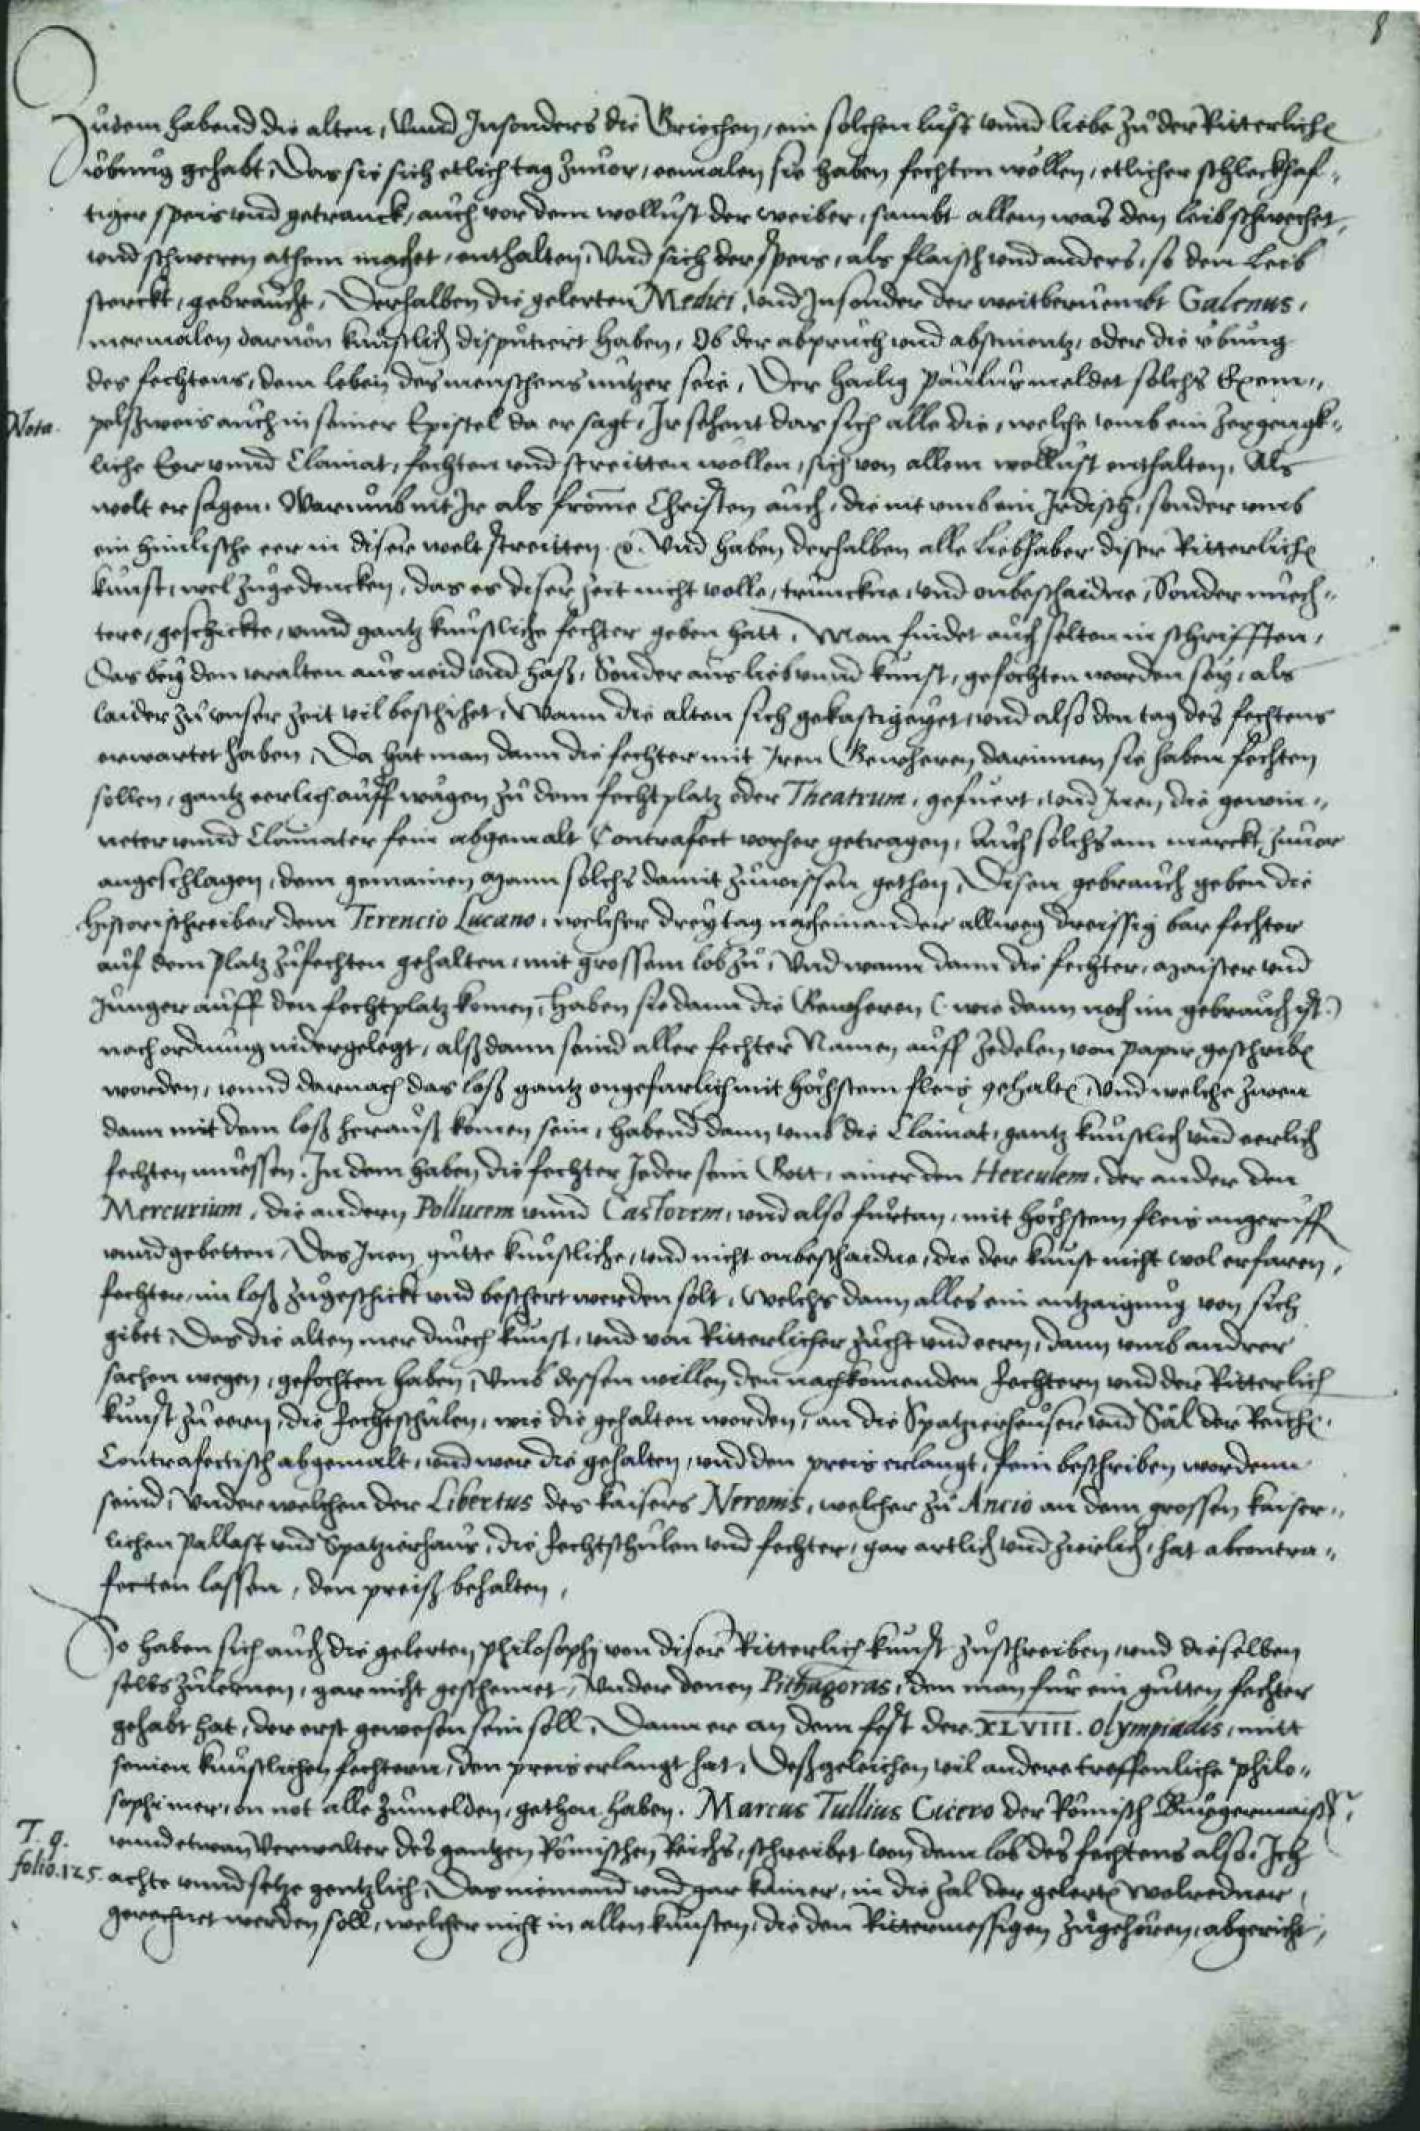 8
Zůdem habend die alten, Vnnd Jnsonders die Griechen, ein solchen lust vnnd liebe zů der Ritterlichē
übung gehabt, Das sie sich etlich tag zuuor, eemalen sie haben fechten wöllen, etlicher schleckhaf-
tiger speis vnd getranck, auch vor dem wollust der weiber, sambt allem was den leib schwechet,
vnd schweren athem machet, enthalten, Vnd sich der speis, als flaisch vnd anders, so den Leib
sterckt, gebraucht, Derhalben die gelerten Medici, vnd Jnsonder der weitberuembt Galenus,
mermalen daruon kunstlich disputiert haben, Ob der abpruch vnd abstinentz, oder die übung
des fechtens, dem leben des menschens nutzer seie, Der hailig Paulus meldet solchs Exem-
Nota.
pelsweis auch in seiner Epistel da er sagt, Jr sehent das sich alle die, welche vmb ein zergengk-
liche Eer vnnd Clainat, fechten vnd streitten wöllen, sich von allem wollust enthalten, Als
wolt er sagen, Warumb nit Jr als from̄e Christen auch, die nit vmb ein Jrdisch, sonder vmb
ein himlische eer in diser welt streitten. Vnd haben derhalben alle Liebhaber diser Ritterlichē
kunst, wol zugedencken, das es diser zeit nicht volle, trunckne, vnd onbeschaidne, Sonder nüech-
tere, geschickte, vnnd gantz kunstliche fechter geben hatt, Man findet auch selten in schrifften,
das bey den vralten aus neid vnd hass, Sonder aus lieb vnnd kunst, gefochten worden sey, als
laider zu vnser zeit vil beschihet, Wann die alten sich gekastigeyet, vnd also den tag des fechtens
erwartet haben, Da hat man dann die fechter mit Jren Gewheren darinnen sie haben fechten
sollen, gantz eerlich auff wägen zů dem fechtplatz oder Theatrum, gefuert, vnd Jnen, die gewin-
neter vnnd Clainater fein abgemalt Contrafect vorher getragen, Auch solchs am marckt zuuor
angeschlagen, dem gemainen mann solchs damit zuwissen gethon, Disen gebrauch geben die
Historischreiber dem Terencio Lucano, welcher drey tag nacheinander allweg dreissig bar fechter
auf dem Platz zufechten gehalten, mit grossem lob zů, Vnd wann dann die fechter, maister vnd
Junger auff den fechtplatz komen, haben sie dann die Gewheren (: wie dann noch im gebrauch ist :)
nach ordnung nidergelegt, alssdann seind aller fechter Namen, auff zedelen von papir geschribē
worden, vnnd darnach das loss gantz ongefarlich mit höchstem fleis gehaltē, Vnd welche zween
dann mit dem loss herauss komen sein, habend dann vmb die Clainat, gantz kunstlich vnd eerlich
fechten muessen. Jn dem haben die fechter Jeder sein Gott, ainer den Herculem, der ander den
Mercurium, die andern Pollucem vnnd Castorem, vnd also furtan, mit höchstem fleis angerufft
vnnd gebetten, Das Jnen gutte kunstliche, vnd nicht onbeschaidne, die der kunst nicht wol erfaren,
fechter, im loss zugeschickt vnd beschert werden solt, Welchs dann alles ein antzaigung von sich
gibet, Das die alten mer durch kunst, vnd von Ritterlicher zucht vnd eern, dann vmb andrer
sachen wegen, gefochten haben, Vmb dessen willen den nachkomenden fechtern vnd der Ritterlich
kunst zu eern, die fechtschulen, wie die gehalten worden, an die Spatzierheuser vnd Säl der Reichē
Contrafectisch abgemalt, vnd wer die gehalten, vnd den preis erlangt, fein beschriben wordenn
seind, Vnder welchen der Libertus des kaisers Neronis, welcher zu Ancio an dem grossen kaiser-
lichen Pallast vnd Spatzierhaus, die fechtschulen vnd fechter, gar artlich vnd zierlich, hat abcontra-
fecten lassen, den preiss behalten,
So haben sich auch die gelerten philosophi von diser Ritterlich kunst zuschreiben, vnd dieselben
selbs zulernen, gar nicht geschemet, Vnder denen Pithagoras, den man fur ein gutten fechter
gehabt hat, der erst gewesen sein soll, Dann er an dem fest der XLVIII. olympiadis, mitt
seinen kunstlichen fechtern, den preis erlangt hat, Dessgeleichen vil andere treffenliche philo-
sophi mer, on not alle zumelden, gethon haben. Marcus Tullius Cicero der Römisch Burgermaister,
T. q.
folio. 125.
vnnd etwan Verwalter des gantzen Römischen Reichs, schreibet von dem lob des fechtens also, Jch
achte vnnd setze gentzlich, Das niemand vnd gar kainer, in die zal der gelertē wolredner,
gerechnet werden soll, welcher nicht in allen kunsten, die den Rittermessigen zugehören, abgericht,